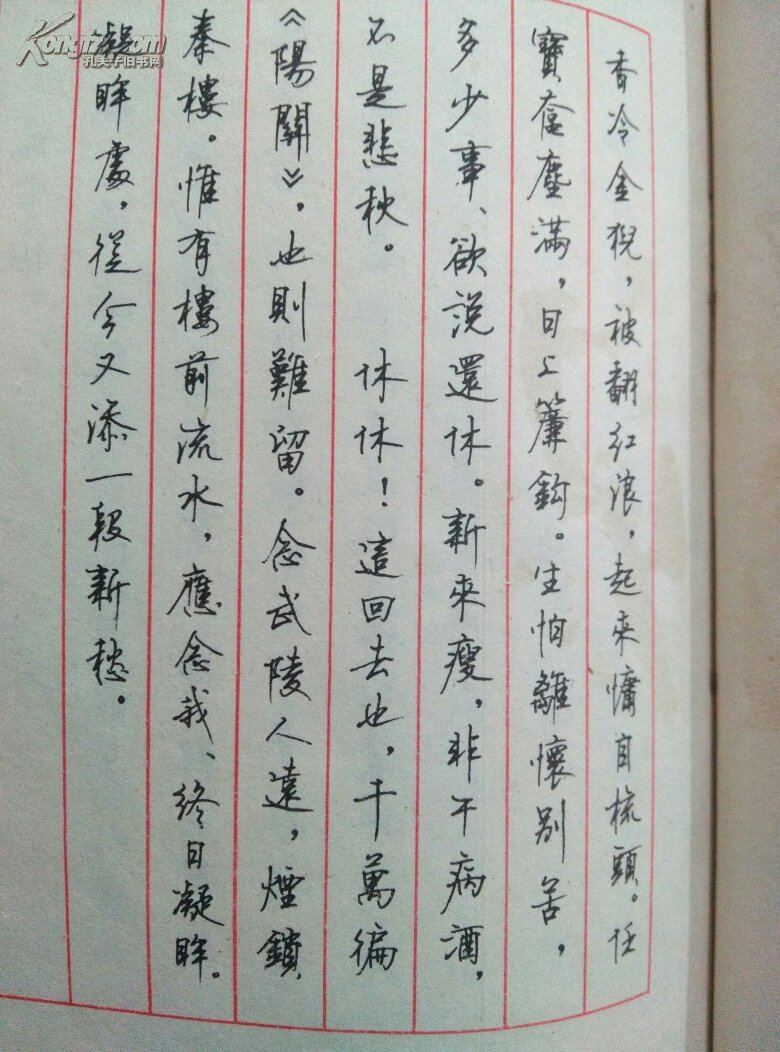 香冷金猊，被翻紅浪，起來慵自梳頭。任
寶奩塵滿，日上簾鈎。生怕離懷別苦，
多少事、欲説還休。新來瘦，非干病酒，
不是悲秋。　休休！這回去也，千萬徧
《陽關》，也則難留。念武陵人遠，煙鎖
秦樓。惟有樓前流水，應念我、終日凝眸。
凝眸處，從今又添一段新愁。
Kongfz.com
孔夫子旧书网